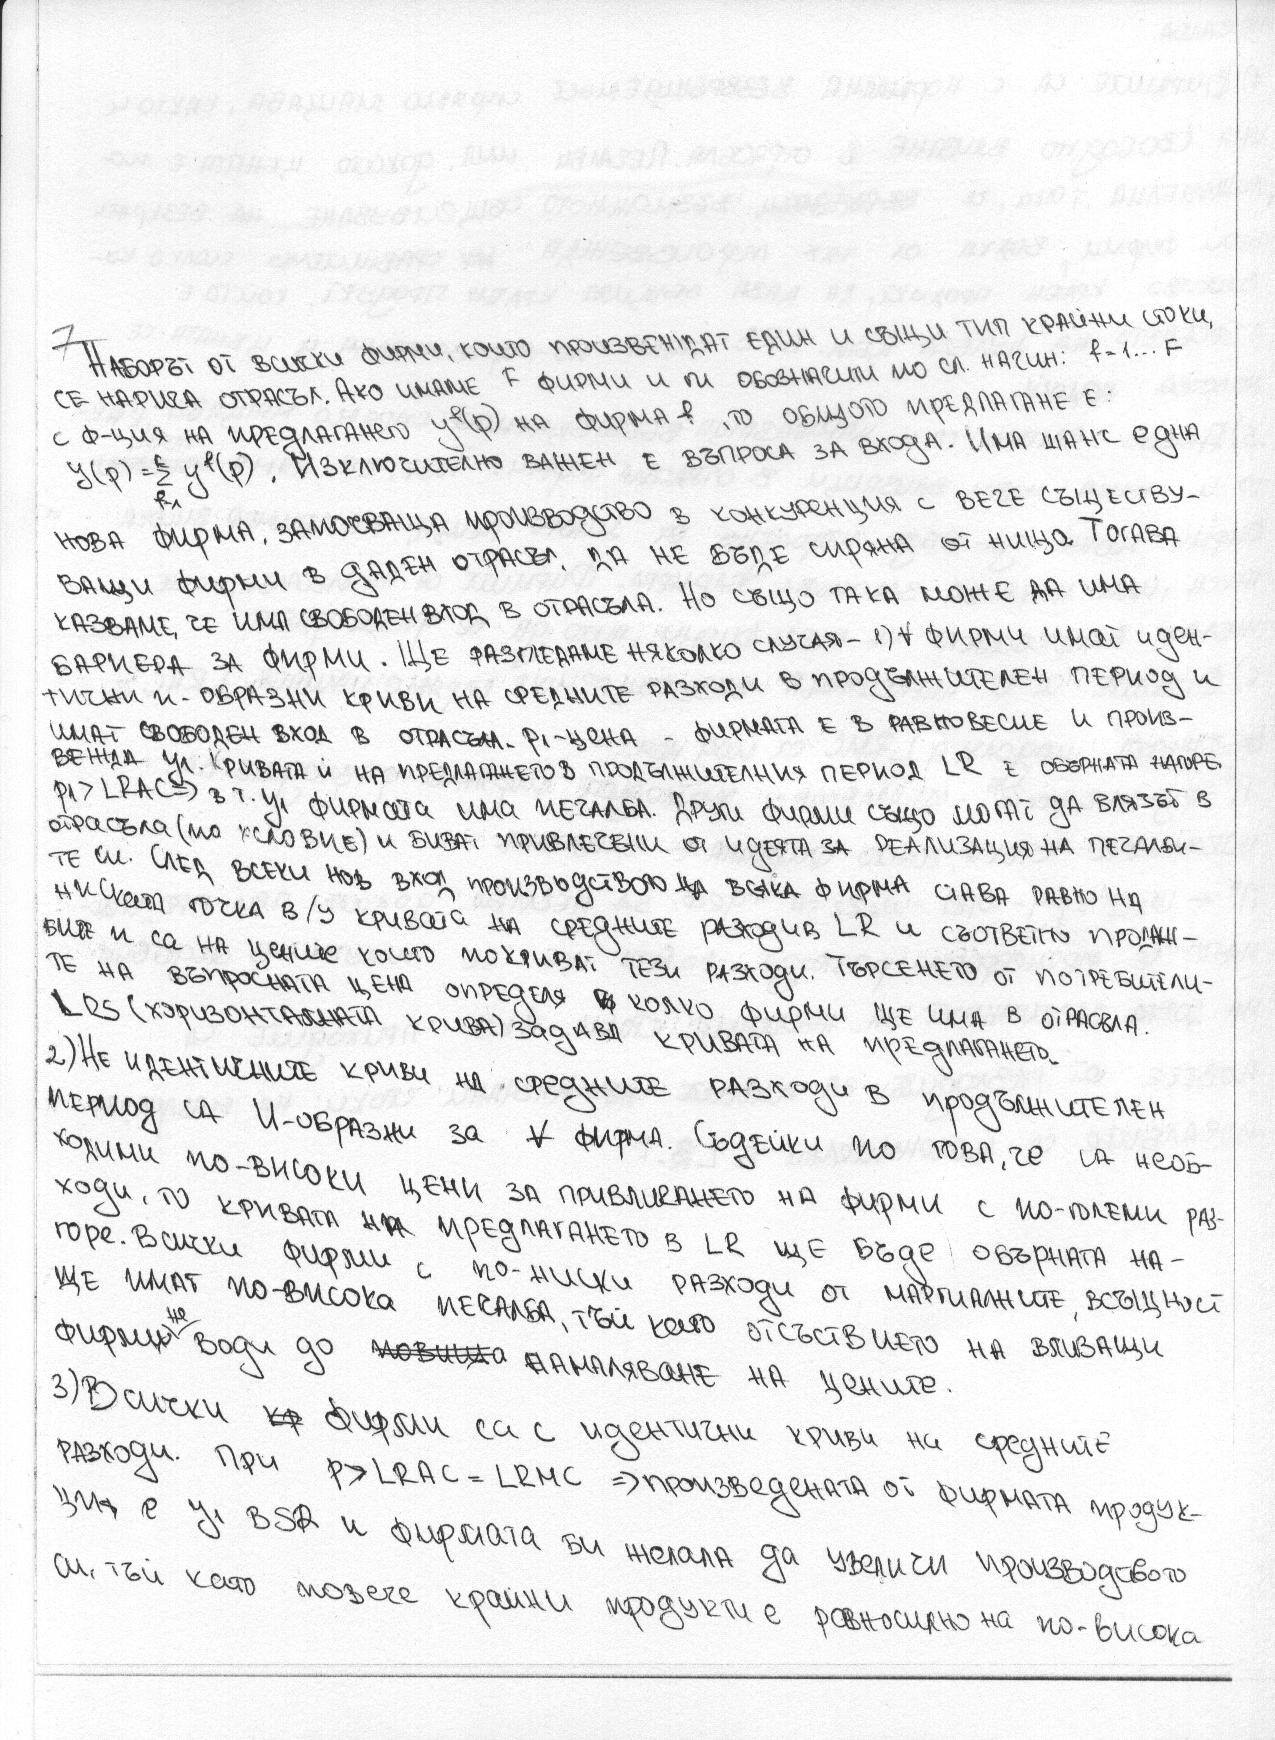 7 Наборът от всички фирми, които произвеждат един и същи тип крайни стоки,
се нарича отрасъл. Ако имаме F фирми и ги обозначим по сл. начин: f=1...F
с ф-ция на предлагането y^f(p) на фирма f, то общото предлагане е:
y(p)=Σ y^f(p). Изключително важен е въпроса за входа. Има шанс една
нова фирма, започваща производство в конкуренция с вече съществу-
ващи фирми в даден отрасъл, да не бъде спряна от нищо. Тогава
казваме, че има свободен вход в отрасъла. Но също така може да има
бариера за фирми. Ще разгледаме няколко случая – 1) ∀ фирми имат иден-
тични и-образни криви на средните разходи в продължителен период и
имат свободен вход в отрасъл. p1-цена - фирмата е в равновесие и произ-
вежда y1. Кривата ѝ на предлагането в продължителния период LR е обърната нагоре.
p1>LRAC=> в т. y1 фирмата има печалба. Други фирми също могат да влязат в
отрасъла (по условие) и биват привлечени от идеята за реализация на печалби-
те си. След всеки нов вход производството на всяка фирма става равно на
ниската точка в/у кривата на средните разходи в LR и съответно продаж-
бите и са на цените които покриват тези разходи. Търсенето от потребители-
те на въпросната цена определя колко фирми ще има в отрасъла.
LRS (хоризонталната крива) задава кривата на предлагането.
2) Не идентичните криви на средните разходи в продължителен
период са И-образни за ∀ фирма. Съдейки по това, че са необ-
ходими по-високи цени за привличането на фирми с по-големи раз-
ходи, то кривата на предлагането в LR ще бъде обърната на-
горе. Всички фирми с по-ниски разходи от маргиналните, всъщност
ще имат по-висока печалба, тъй като отсъствието на влизащи
фирми не води до намаляване на цените.
3) Всички фирми са с идентични криви на средните
разходи. При p>LRAC=LRMC => произведената от фирмата продук-
ция е y1 в SR и фирмата би желала да увеличи производството
си, тъй като повече крайни продукти е равносилно на по-висока